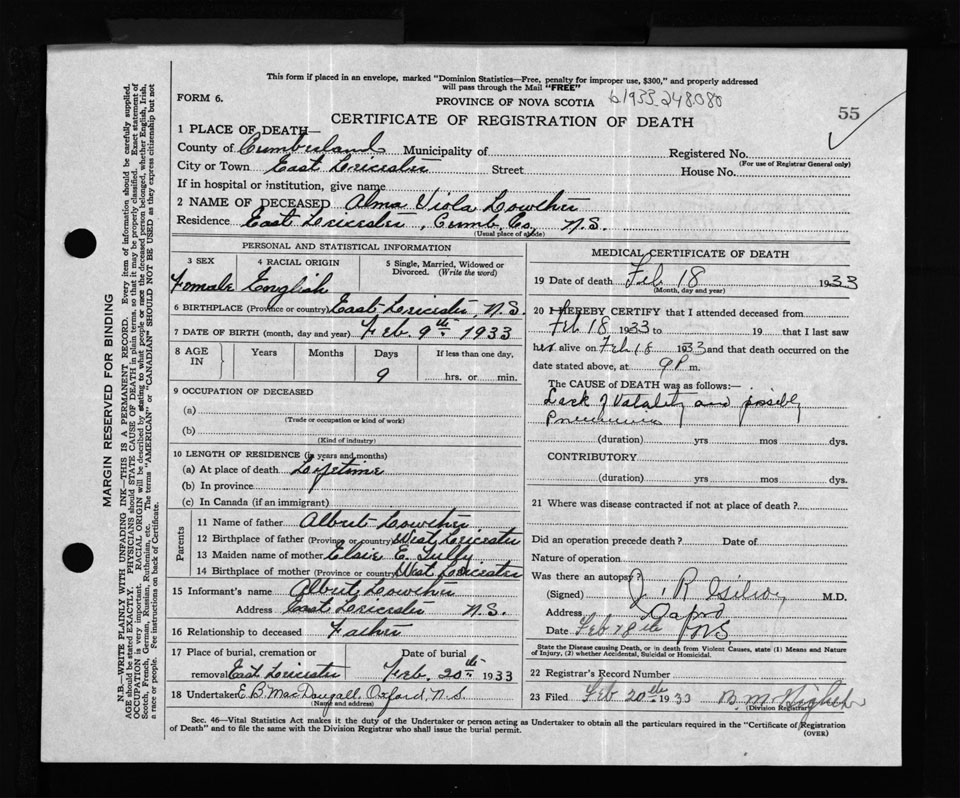 This form if placed in an envelope, marked "Dominion Statistics—Free, penalty for improper use, $300," and properly addressed
will pass through the Mail "FREE"
FORM 6.
PROVINCE OF NOVA SCOTIA b1933 248080
55
CERTIFICATE OF REGISTRATION OF DEATH
1 PLACE OF DEATH—
County of Cumberland Municipality of Registered No.
(For use of Registrar General only)
City or Town East Leicester Street House No.
If in hospital or institution, give name
2 NAME OF DECEASED Alma Viola Lowther
Residence East Leicester, Cumb. Co., N.S.
(Usual place of abode)
PERSONAL AND STATISTICAL INFORMATION
3 SEX 4 RACIAL ORIGIN 5 Single, Married, Widowed or
Divorced. (Write the word)
Female English
6 BIRTHPLACE (Province or country) East Leicester, N.S.
7 DATE OF BIRTH (month, day and year) Feb. 9th, 1933
8 AGE IN Years Months Days If less than one day,
9 hrs. or min.
9 OCCUPATION OF DECEASED
(a)
(Trade or occupation or kind of work)
(b)
(Kind of industry)
10 LENGTH OF RESIDENCE (in years and months)
(a) At place of death Lifetime
(b) In province
(c) In Canada (if an immigrant)
Parents
11 Name of father Albert Lowther
12 Birthplace of father (Province or country) West Leicester
13 Maiden name of mother Elsie E. Tully
14 Birthplace of mother (Province or country) West Leicester
15 Informant's name Albert Lowther
Address East Leicester N.S.
16 Relationship to deceased Father
17 Place of burial, cremation or Date of burial
removal Est Leicester Feb. 20th 1933
18 Undertaker E.B. MacDougall, Oxford, N.S.
(Name and address)
MEDICAL CERTIFICATE OF DEATH
19 Date of death Feb 18 1933
(Month, day and year)
20 I HEREBY CERTIFY that I attended deceased from
Feb 18 1933 to 19 that I last saw
her alive on Feb 18 1933 and that death occurred on the
date stated above, at 9 P m.
The CAUSE OF DEATH was as follows:—
Lack of Vatality and possibly
(duration) yrs mos dys.
CONTRIBUTORY
(duration) yrs mos dys.
21 Where was disease contracted if not at place of death?
Did an operation precede death? Date of
Nature of operation
Was there an autopsy?
(Signed) J. R. M.D.
Address Oxford
Date Feb th NS
State the Disease causing Death, or in death from Violent Causes, state (1) Means and Nature
of Injury, (2) whether Accidental, Suicidal or Homicidal.
22 Registrar's Record Number
23 Filed Feb 20th 1933 B. M.
(Division Registrar)
Sec. 46—Vital Statistics Act makes it the duty of the Undertaker or person acting as Undertaker to obtain all the particulars required in the "Certificate of Registration
of Death" and to file the same with the Division Registrar who shall issue the burial permit.
(OVER)
MARGIN RESERVED FOR BINDING
N.B.—WRITE PLAINLY WITH UNFADING INK—THIS IS A PERMANENT RECORD. Every item of information should be carefully supplied.
AGE should be stated EXACTLY. PHYSICIANS should STATE CAUSE OF DEATH in plain terms, so that it may be properly classified. Exact statement of
OCCUPATION is very important. RACIAL ORIGIN will be described by stating to what people or race the deceased person belonged, whether English, Irish,
Scotch, French, German, Russian, Ruthenian, etc. The terms "AMERICAN" or "CANADIAN" SHOULD NOT BE USED as they express citizenship but not
a race or people. See instructions on back of Certificate.